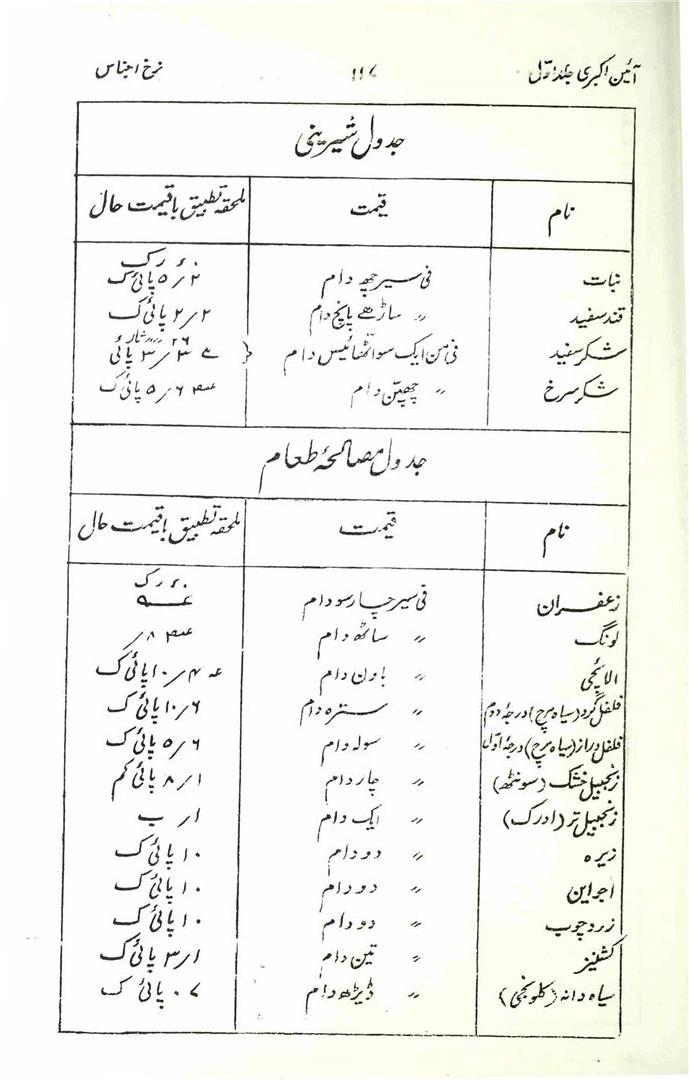 آئین اکبری جلد اوّل ۱۱۷ نرخ اجناس
جدول شیرینی
نام قیمت ملحقہ تطبیق باقیمت حال
نبات فی سیر چھ دام ۲ر۵ پائی ک
قند سفید 〃 ساڑھے پانچ دام ۲ر۲ پائی ک
شکر سفید فی من ایک سو اٹھائیس دام ۳ر۳ پائی
شکر سرخ 〃 چھپّن دام ۶ر۵ پائی ک
جدول مصالحۂ طعام
نام قیمت ملحقہ تطبیق باقیمت حال
زعفران فی سیر چار سو دام
لونگ 〃 ساٹھ دام ۸ر
الائچی 〃 باون دام ۴ر۱۰ پائی ک
فلفل گرد (سیاہ مرچ) درجۂ دوم 〃 سترہ دام ۶ر۱۰ پائی ک
فلفل دراز (سیاہ مرچ) درجۂ اوّل 〃 سولہ دام ۶ر۵ پائی ک
زنجبیل خشک (سونٹھ) 〃 چار دام ۱ر۸ پائی کم
زنجبیل تر (ادرک) 〃 ایک دام ۱ر ب
زیرہ 〃 دو دام ۱۰ پائی ک
اجواین 〃 دو دام ۱۰ پائی ک
زرد چوب 〃 دو دام ۱۰ پائی ک
کشنیز 〃 تین دام ۱ر۳ پائی ک
سیاہ دانہ (کلونجی) 〃 ڈیڑھ دام ۷۰ پائی ک